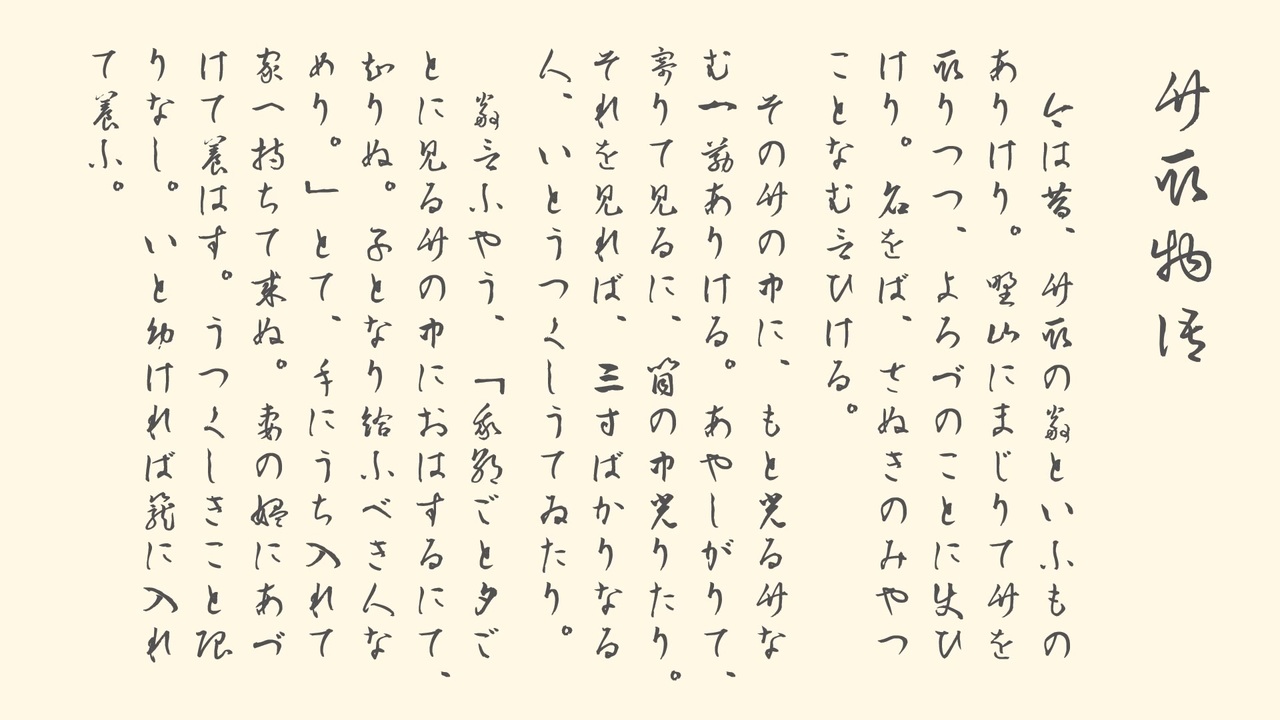 竹取物語
今は昔、竹取の翁といふもの
ありけり。野山にまじりて竹を
取りつつ、よろづのことに使ひ
けり。名をば、さぬきのみやつ
ことなむ言ひける。
その竹の中に、もと光る竹な
む一筋ありける。あやしがりて、
寄りて見るに、筒の中光りたり。
それを見れば、三寸ばかりなる
人、いとうつくしうてゐたり。
翁言ふやう、「我朝ごと夕ご
とに見る竹の中におはするにて、
知りぬ。子となり給ふべき人な
めり。」とて、手にうち入れて
家へ持ちて来ぬ。妻の嫗にあづ
けて養はす。うつくしきこと限
りなし。いと幼ければ籠に入れ
て養ふ。